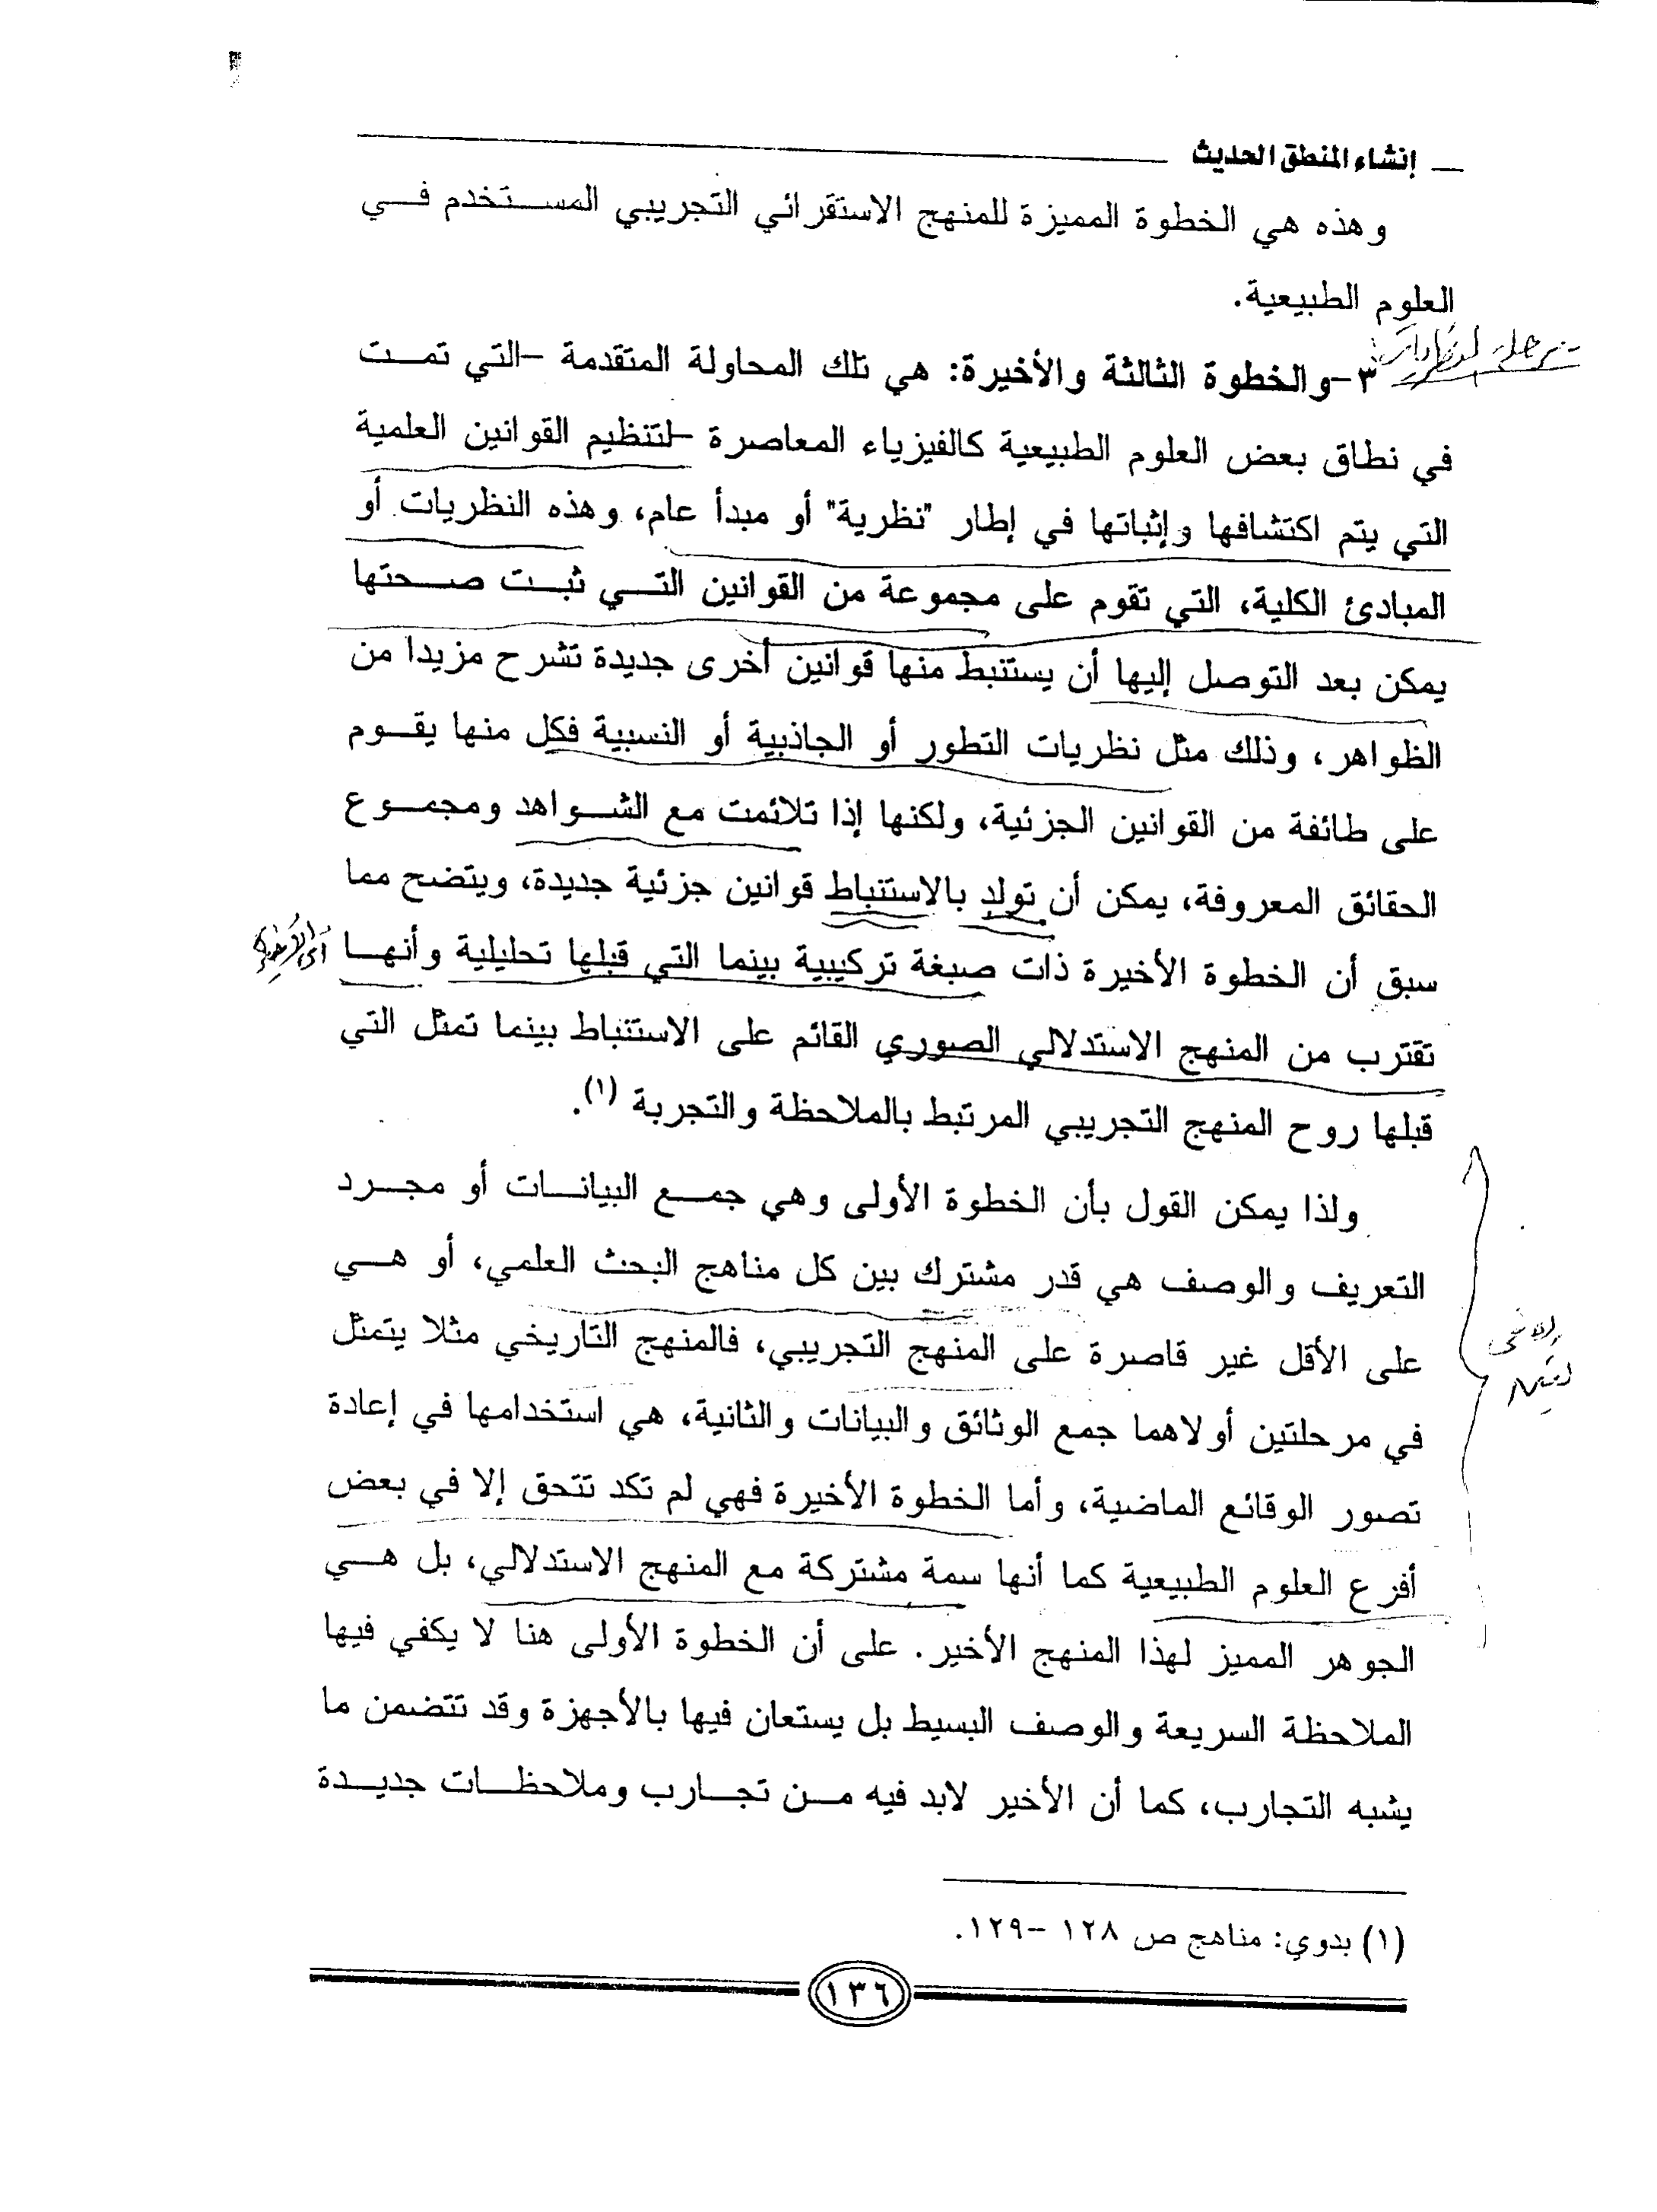 إنشاء المنطق الحديث
وهذه هي الخطوة المميزة للمنهج الاستقرائي التجريبي المستخدم في
العلوم الطبيعية.
٣-والخطوة الثالثة والأخيرة: هي تلك المحاولة المتقدمة -التي تمت
في نطاق بعض العلوم الطبيعية كالفيزياء المعاصرة -لتنظيم القوانين العلمية
التي يتم اكتشافها وإثباتها في إطار "نظرية" أو مبدأ عام، وهذه النظريات أو
المبادئ الكلية، التي تقوم على مجموعة من القوانين التي ثبت صحتها
يمكن بعد التوصل إليها أن يستنبط منها قوانين أخرى جديدة تشرح مزيدا من
الظواهر، وذلك مثل نظريات التطور أو الجاذبية أو النسبية فكل منها يقوم
على طائفة من القوانين الجزئية، ولكنها إذا تلائمت مع الشواهد ومجموع
الحقائق المعروفة، يمكن أن تولد بالاستنباط قوانين جزئية جديدة، ويتضح مما
سبق أن الخطوة الأخيرة ذات صبغة تركيبية بينما التي قبلها تحليلية وأنها
أي الأخيرة
تقترب من المنهج الاستدلالي الصوري القائم على الاستنباط بينما تمثل التي
قبلها روح المنهج التجريبي المرتبط بالملاحظة والتجربة (١).
ولذا يمكن القول بأن الخطوة الأولى وهي جمع البيانات أو مجرد
التعريف والوصف هي قدر مشترك بين كل مناهج البحث العلمي، أو هي
على الأقل غير قاصرة على المنهج التجريبي، فالمنهج التاريخي مثلا يتمثل
في مرحلتين أولاهما جمع الوثائق والبيانات والثانية، هي استخدامها في إعادة
تصور الوقائع الماضية، وأما الخطوة الأخيرة فهي لم تكد تتحق إلا في بعض
أفرع العلوم الطبيعية كما أنها سمة مشتركة مع المنهج الاستدلالي، بل هي
الجوهر المميز لهذا المنهج الأخير. على أن الخطوة الأولى هنا لا يكفي فيها
الملاحظة السريعة والوصف البسيط بل يستعان فيها بالأجهزة وقد تتضمن ما
يشبه التجارب، كما أن الأخير لابد فيه من تجارب وملاحظات جديدة
(١) بدوي: مناهج ص ١٢٨ -١٢٩.
١٣٦